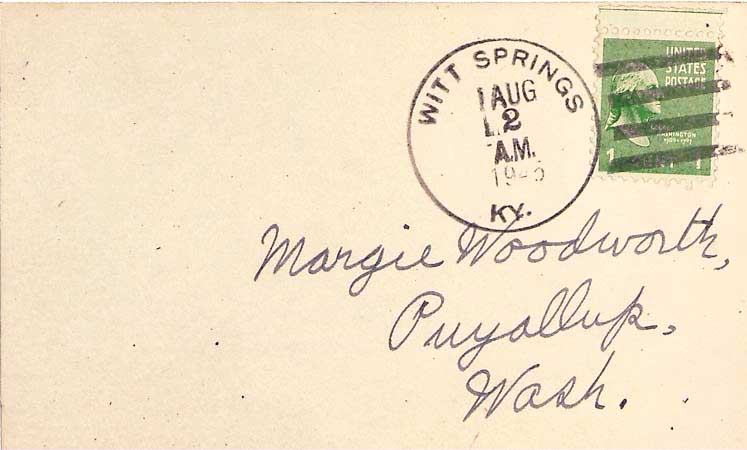 WITT SPRINGS
AUG
2
A.M.
KY.
UNITED
STATES
POSTAGE
WASHINGTON
1
1
Margie Woodworth,
Puyallup,
Wash.